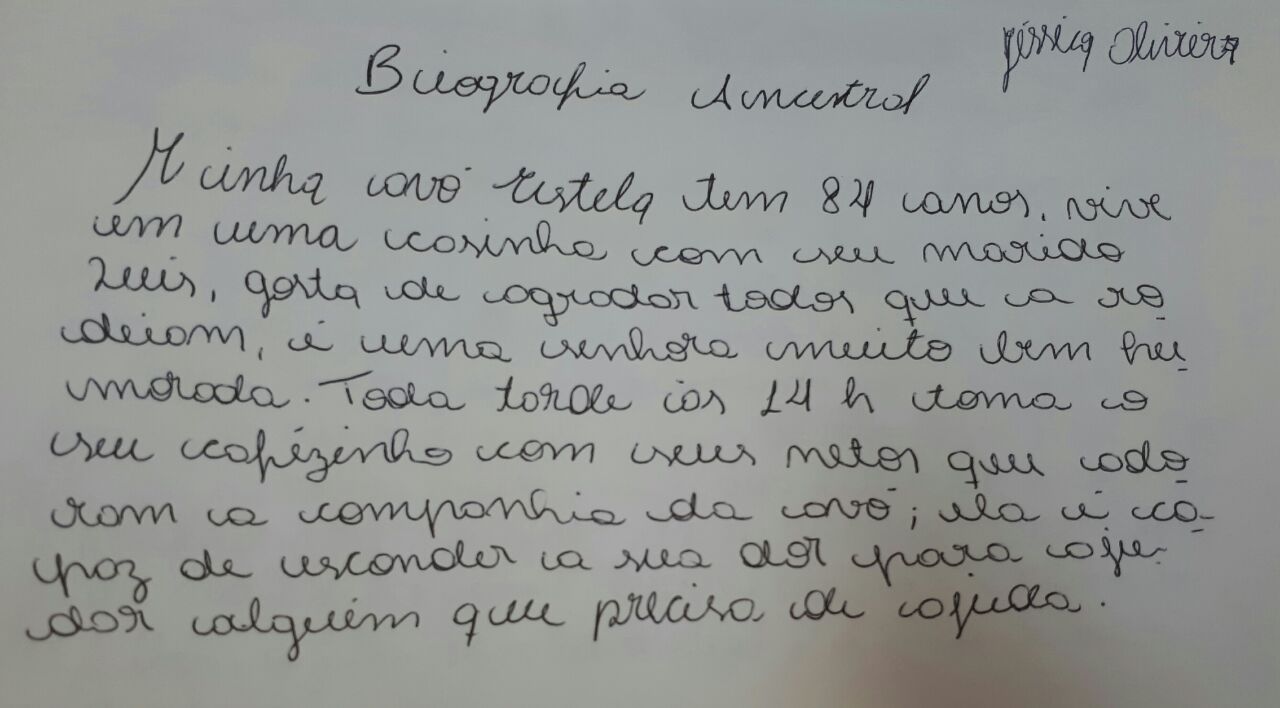 Jéssica Oliveira
Biografia Ancestral
Minha avó Estela tem 84 anos, vive
em uma casinha com seu marido
Luis, gosta de agradar todos que a ro
deiam, é uma senhora muito bem hu
morada. Toda tarde às 14 h toma o
seu cafézinho com seus netos que ado
ram a companhia da avó; ela é ca-
paz de esconder a sua dor para aju-
dar alguém que precisa de ajuda.